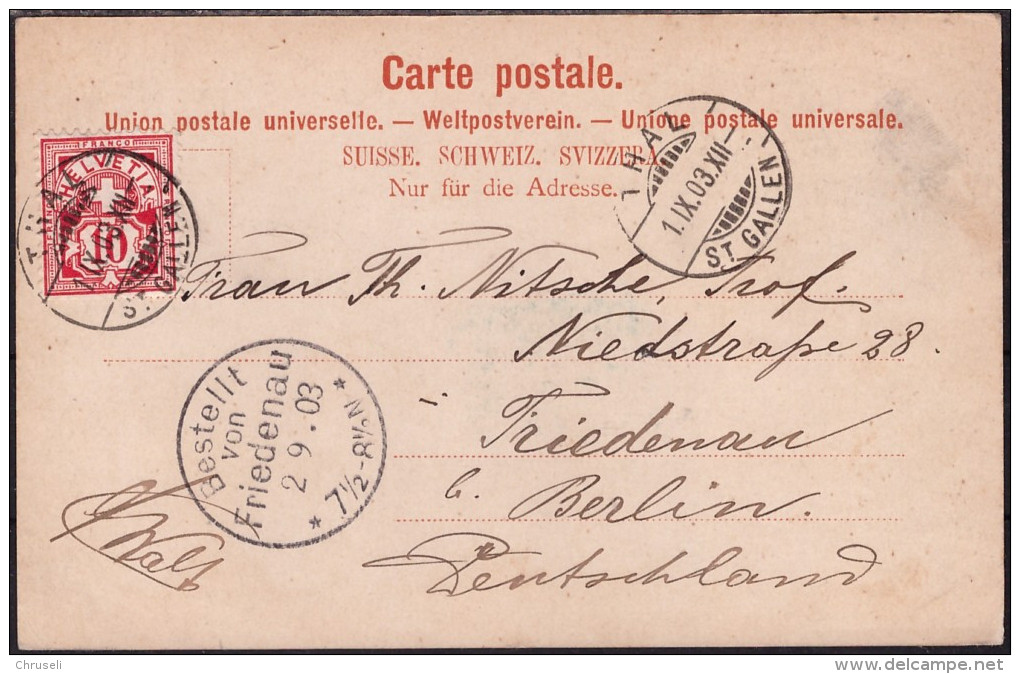 Carte postale.
Union postale universelle. — Weltpostverein. — Unione postale universale.
SUISSE. SCHWEIZ. SVIZZERA.
Nur für die Adresse.
FRANCO
HELVETIA
10
THAL
1.IX.03.XII–
ST. GALLEN
THAL
1.IX.03.XII–
ST. GALLEN
Frau Th. Nitsche, Prof.
Niedstraße 28.
Friedenau
b. Berlin.
Deutschland
Bestellt
von
Friedenau
2 9 . 03
* 7½-8½N *
Chruseli
delcampe.net